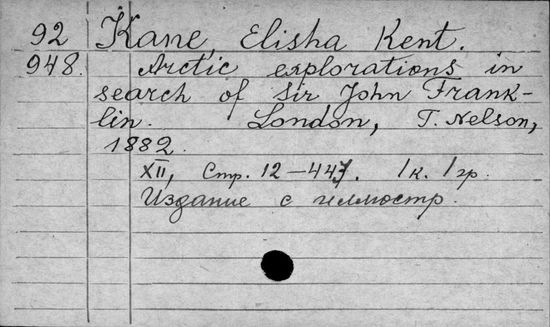 92 Kane, Elisha Kent.
948. Arctic explorations in
search of Sir John Frank-
lin. London, T. Nelson,
1882.
XII, Стр. 12-447. 1к. 1гр.
Издание с иллюстр.